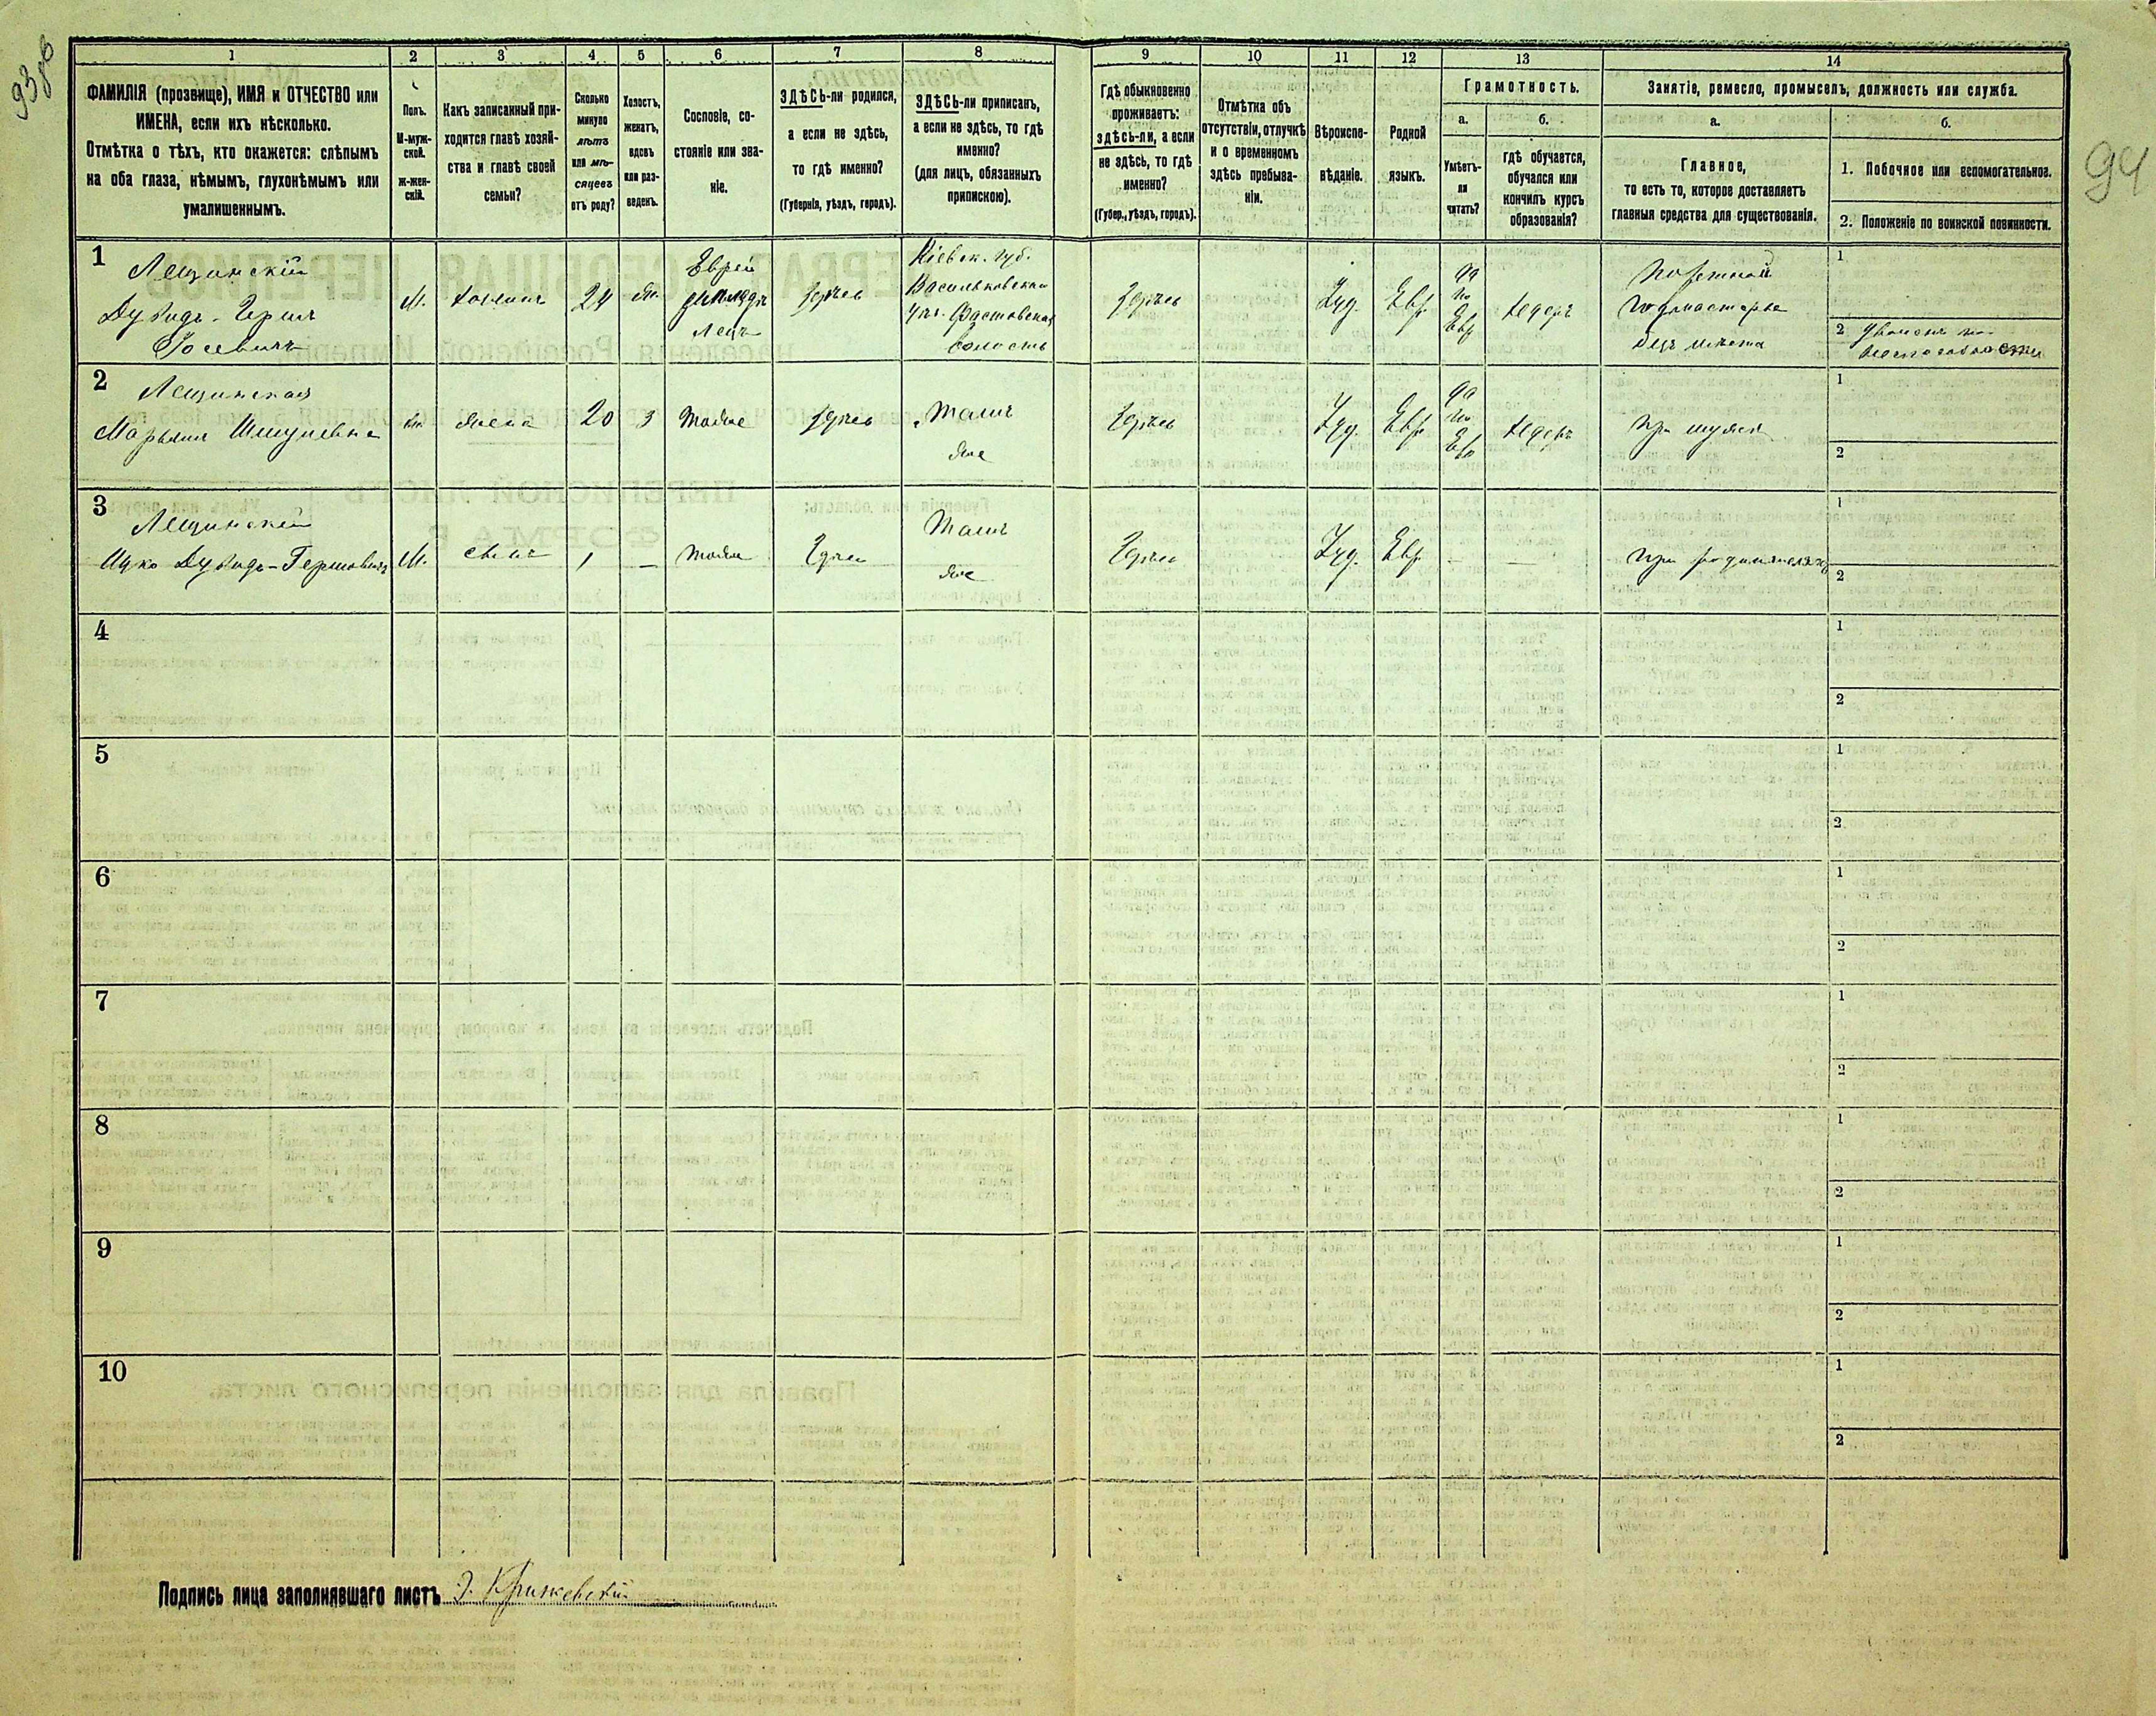 93 об
94
1
2
3
4
5
6
7
8
9
10
11
12
13
14
ФАМИЛІЯ (прозвище), ИМЯ и ОТЧЕСТВО или
ИМЕНА, если ихъ нѣсколько.
Отмѣтка о тѣхъ, кто окажется: слѣпымъ
на оба глаза, нѣмымъ, глухонѣмымъ или
умалишеннымъ.
Полъ.
М-муж-
ской.
ж-жен-
скій.
Какъ записанный при-
ходится главѣ хозяй-
ства и главѣ своей
семьи?
Сколько
минуло
лѣтъ
или мѣ-
сяцевъ
отъ роду?
Холостъ,
женатъ,
вдовъ
или раз-
веденъ.
Сословіе, со-
стояніе или зва-
ніе.
ЗДѢСЬ-ли родился,
а если не здѣсь,
то гдѣ именно?
(Губернія, уѣздъ, городъ).
ЗДѢСЬ-ли приписанъ,
а если не здѣсь, то гдѣ
именно?
(для лицъ, обязанныхъ
припискою).
Гдѣ обыкновенно
проживаетъ:
здѣсь-ли, а если
не здѣсь, то гдѣ
именно?
(Губер., уѣздъ, городъ).
Отмѣтка объ
отсутствіи, отлучкѣ
и о временномъ
здѣсь пребыва-
ніи.
Вѣроиспо-
вѣданіе.
Родной
языкъ.
Грамотность.
а.
Умѣетъ-
ли
читать?
б.
Гдѣ обучается,
обучался или
кончилъ курсъ
образованія?
Занятіе, ремесло, промыселъ, должность или служба.
а.
Главное,
то есть то, которое доставляетъ
главныя средства для существованія.
б.
1. Побочное или вспомогательное.
2. Положеніе по воинской повинности.
1
Лещинскій
Дувидъ-Герш
Іосевичъ
М.
хозяинъ
24
Ж.
Еврей
Здѣсь
Кіевск. губ.
Васильковскаго
у. Фастовская
волость
Здѣсь
Іуд.
Евр.
да
по
Евр
хедеръ
подмастерье
безъ мѣста
1
2
2
Лещинская
Марьямъ Шмулевна
ж
жена
20
З
тоже
Здѣсь
Тамъ
же
Здѣсь
Іуд.
Евр.
да
по
Евр
хедеръ
При мужѣ
1
2
3
Лещинскій
Ицко Дувидъ-Гершовичъ
М.
сынъ
1
—
тоже
Здѣсь
Тамъ
же
Здѣсь
Іуд.
Евр.
—
—
при родителяхъ
1
2
4
1
2
5
1
2
6
1
2
7
1
2
8
1
2
9
1
2
10
1
2
Подпись лица заполнявшаго листъ Э. Крижевскій